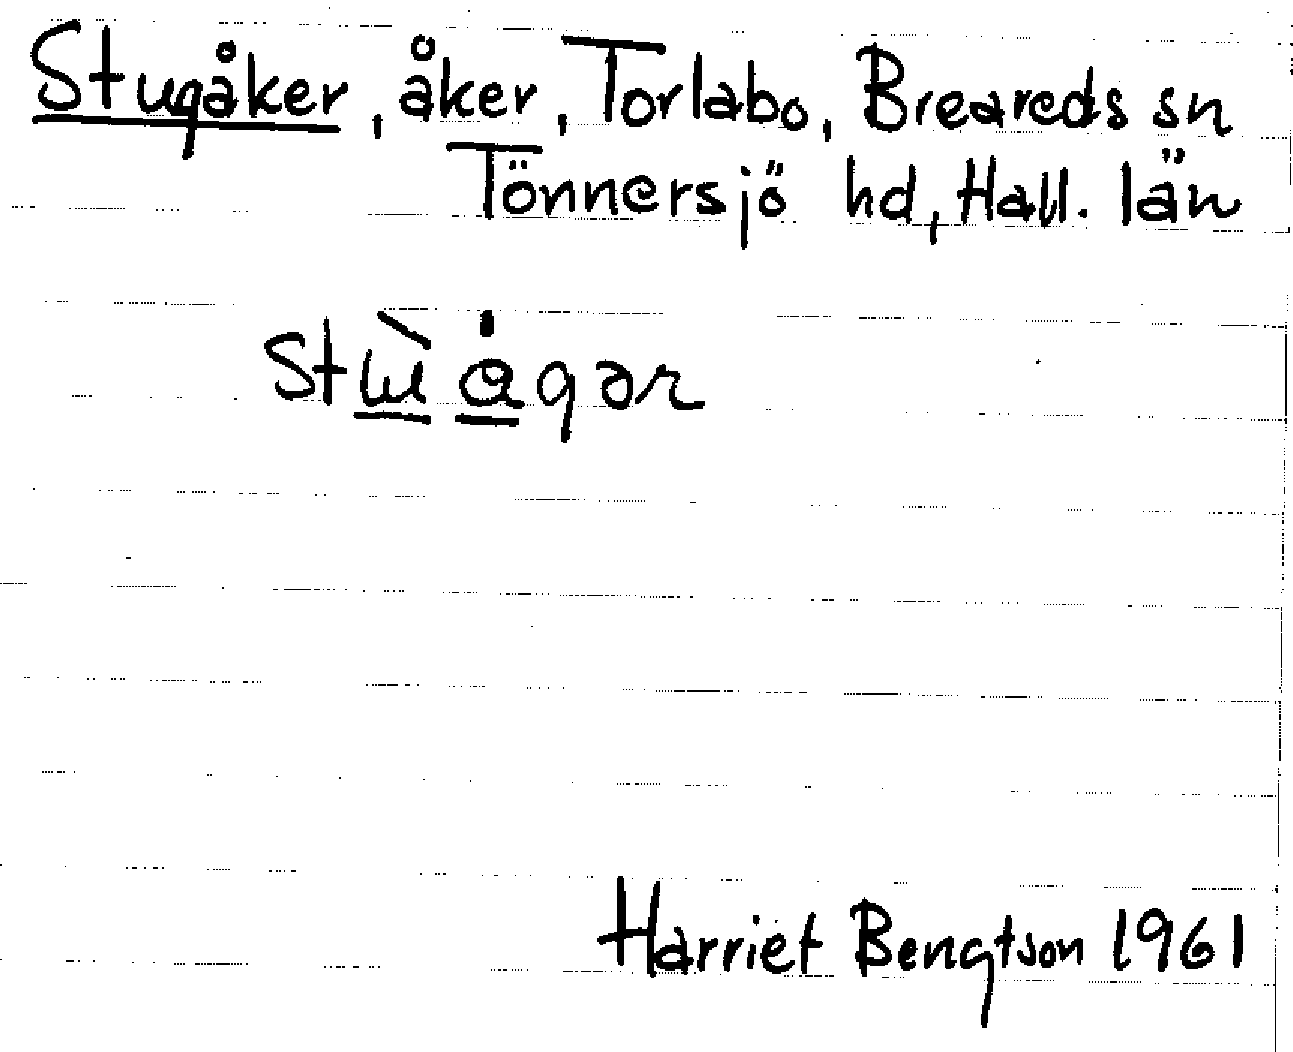 Stugåker, åker, Torlabo, Breareds sn
Tönnersjö hd, Hall. län
Harriet Bengtson 1961